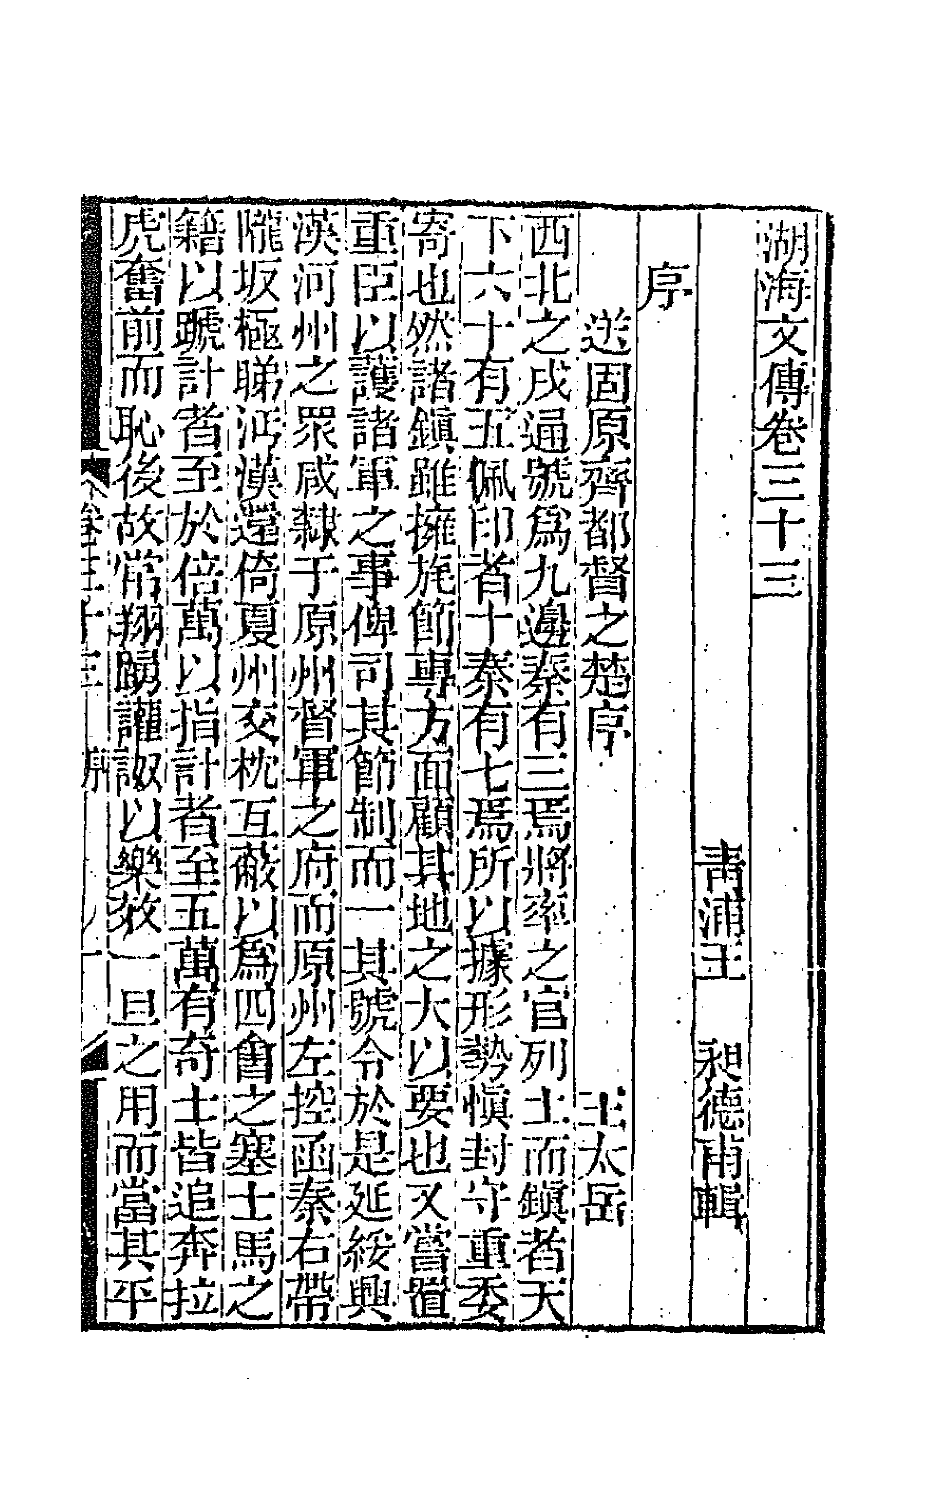 湖海文傳卷三十三
青浦王　昶德甫輯
序
送固原齊都督之楚序　王太岳
西北之戍通號爲九邊秦有三焉將率之官列土而鎭者天
下六十有五佩印者十秦有七焉所以據形勢愼封守重委
寄也然諸鎭雖擁旄節專方面顧其地之大以要也又嘗置
重臣以護諸軍之事俾司其節制而一其號令於是延綏興
漢河州之眾咸隸于原州督軍之府而原州左控函秦右帶
隴坂極睇沔漢還倚夏州交枕互蔽以爲四會之塞士馬之
籍以蹏計者至於倍萬以指計者至五萬有奇士皆追奔拉
虎奮前而恥後故常翔踴讙譈以樂效一旦之用而當其平
卷三十三　序　一